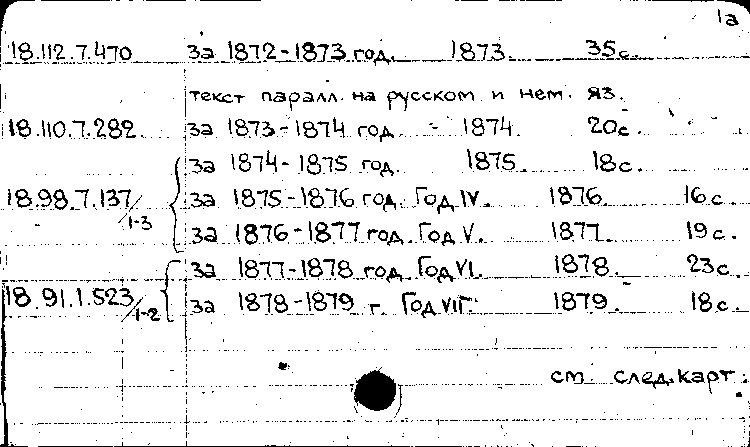 1а
18.112.7.470 за 1872-1873 год. 1873. 35с.
текст паралл. на русском и нем. яз.
18.110.7.282. за 1873-1874 год. - 1874. 20с.
за 1874-1875 год. 1875. 18с.
18.98.7.137/1-3 за 1875-1876 год. Год IV. 1876. 16с.
за 1876-1877 год. Год V. 1877. 19с.
за 1877-1878 год. Год VI. 1878. 23с.
18.91.1.523/1-2 за 1878-1879 г. Год VII. 1879. 18с.
см. след. карт.